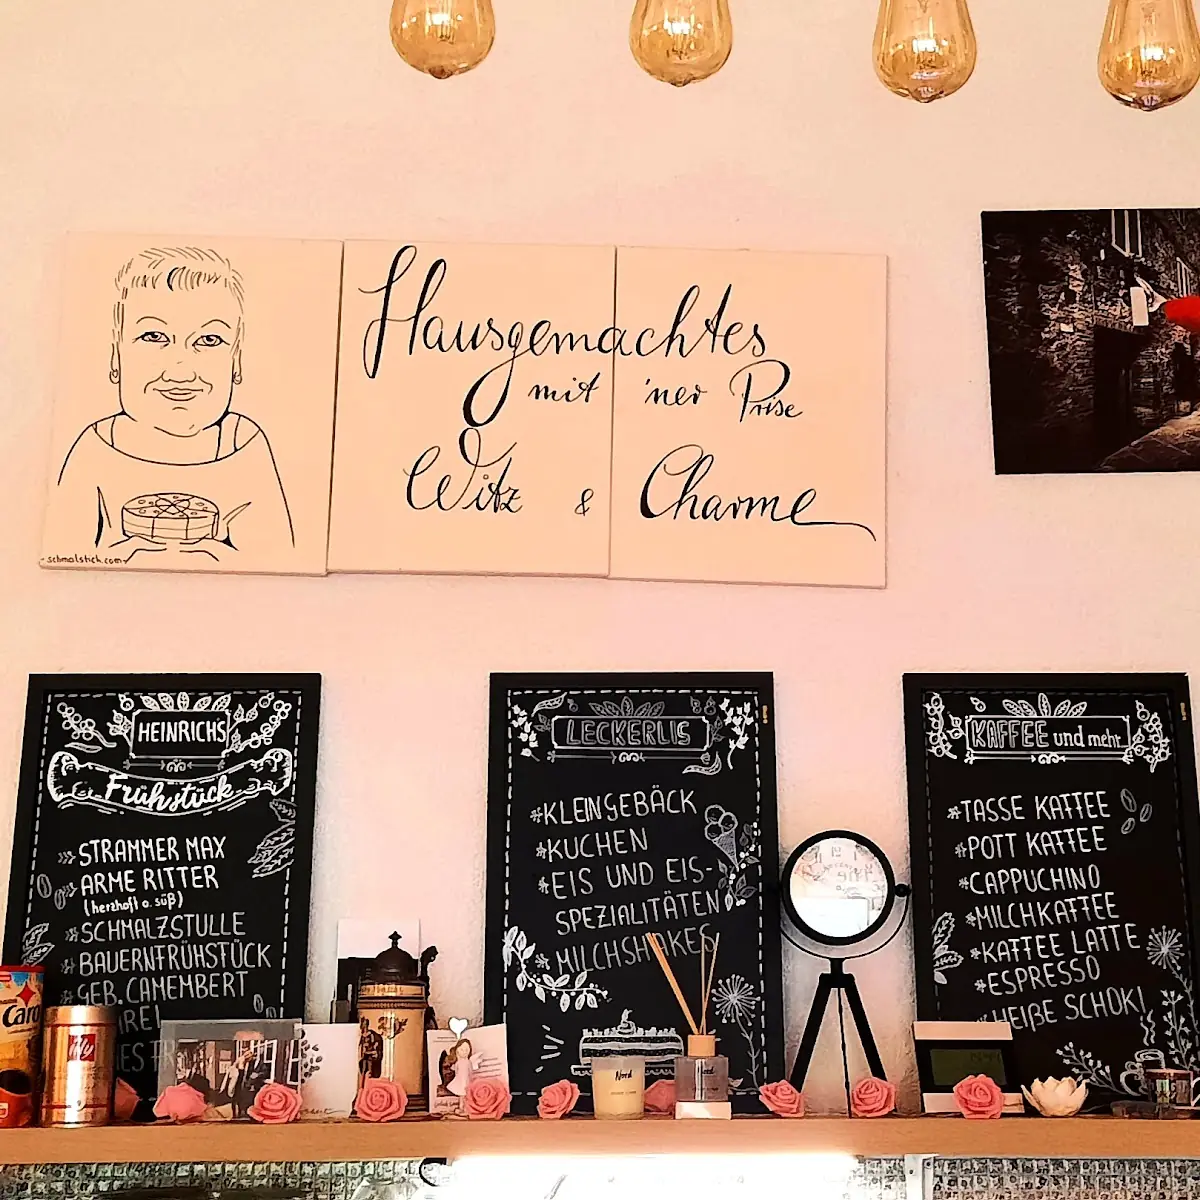 Hausgemachtes
mit 'ner Prise
Witz & Charme
schmalstich.com
HEINRICH'S
Frühstück
STRAMMER MAX
ARME RITTER
(herzhaft o. süß)
*SCHMALZSTULLE
BAUERNFRÜHSTÜCK
GEB. CAMEMBERT
LECKERLIS
*KLEINGEBÄCK
*KUCHEN
*EIS UND EIS-
SPEZIALITÄTEN
*MILCHSHAKES
KAFFEE und mehr...
*TASSE KAFFEE
*POTT KAFFEE
*CAPPUCHINO
*MILCHKAFFEE
*KAFFEE LATTE
*ESPRESSO
HEIßE SCHOKI
illy
Nord
Nord